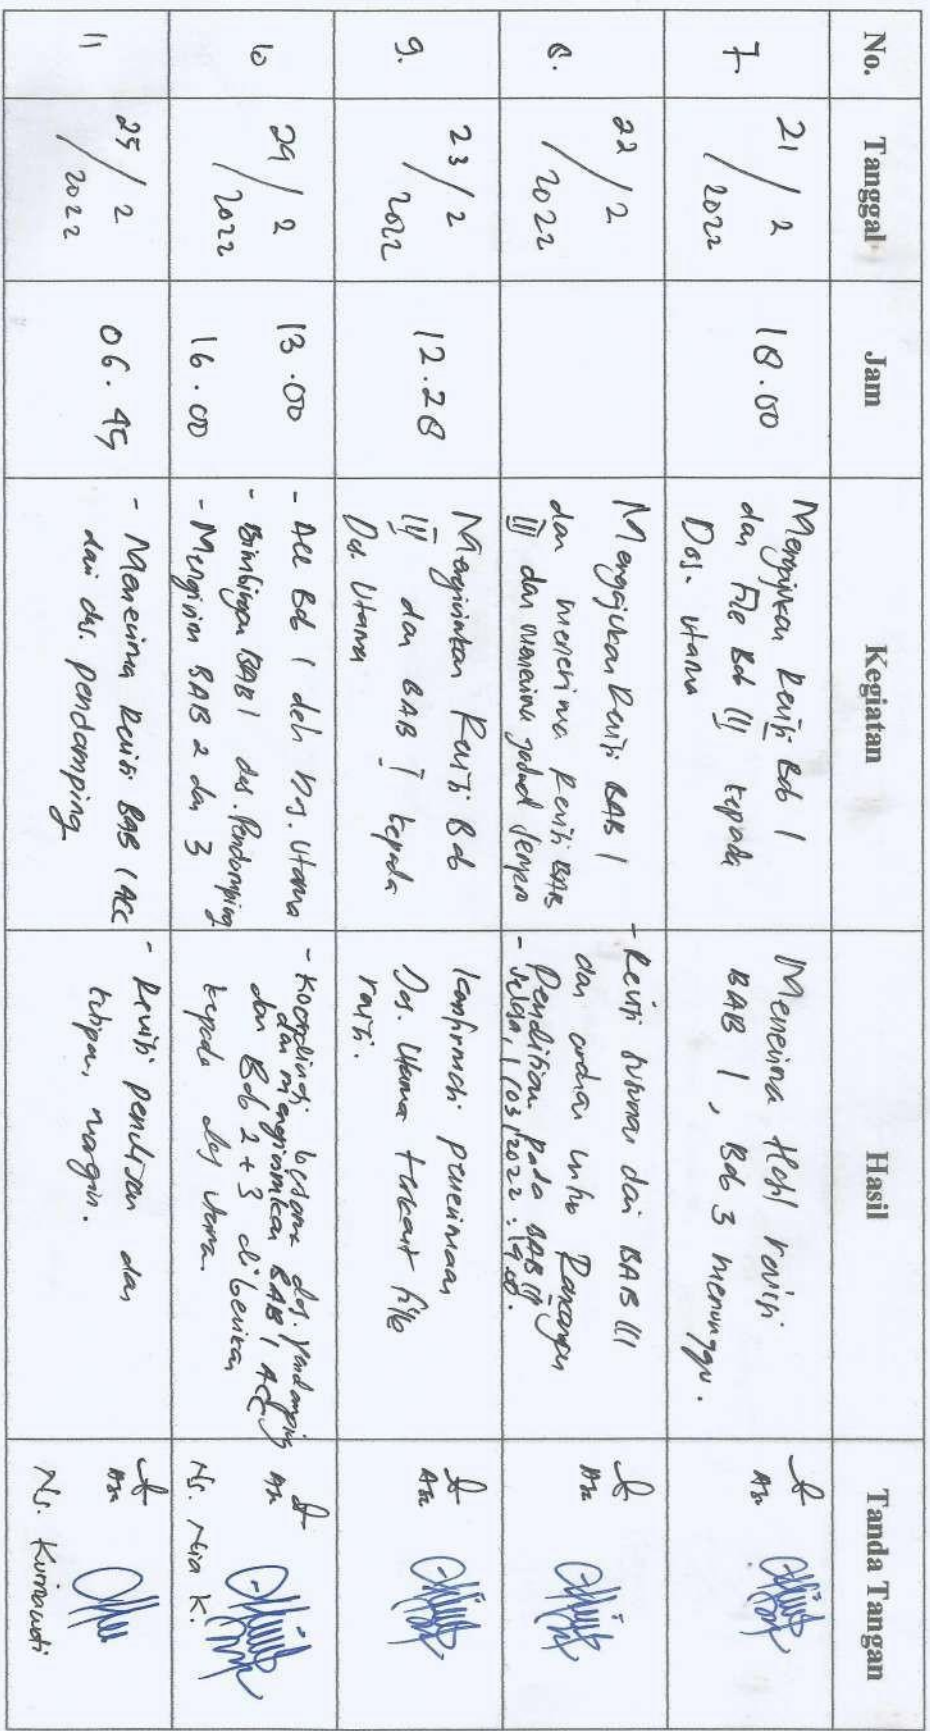 No. Tanggal Jam Kegiatan Hasil Tanda Tangan
7. 21/2 2022 18.00
Mengajukan Revisi Bab 1
dan File Bab III kepada
Dos. Utama
Menerima Hasil revisi
BAB 1, Bab 3 menunggu.
8. 22/2 2022
Mengajukan Revisi BAB 1
dan menerima Revisi BAB
III dan menerima jadwal sempro
- Revisi dari BAB III
dan arahan untuk Rancangan
- Penelitian pada BAB III
selasa, 1/03/2022 :
9. 23/2 2022 12.28
Mengirimkan Revisi Bab
III dan BAB I kepada
Dos. Utama
konfirmasi penerimaan
Dos. Utama terkait file
revisi.
10 24/2 2022 13.00
16.00
- Acc Bab 1 oleh Dos. Utama
- Bimbingan BAB 1 dos. Pendamping
- Mengirim BAB 2 dan 3
- Koordinasi bersama dos. pendamping
dan mengirimkan BAB 1 ACC
dan Bab 2 + 3 diberikan
kepada dos utama.
Ns. Nia K.
11 25/2 2022 06.45
- Menerima Revisi BAB 1 ACC
dari dos. pendamping
- Revisi penulisan dan
kutipan, margin.
Ns. Kurniawati